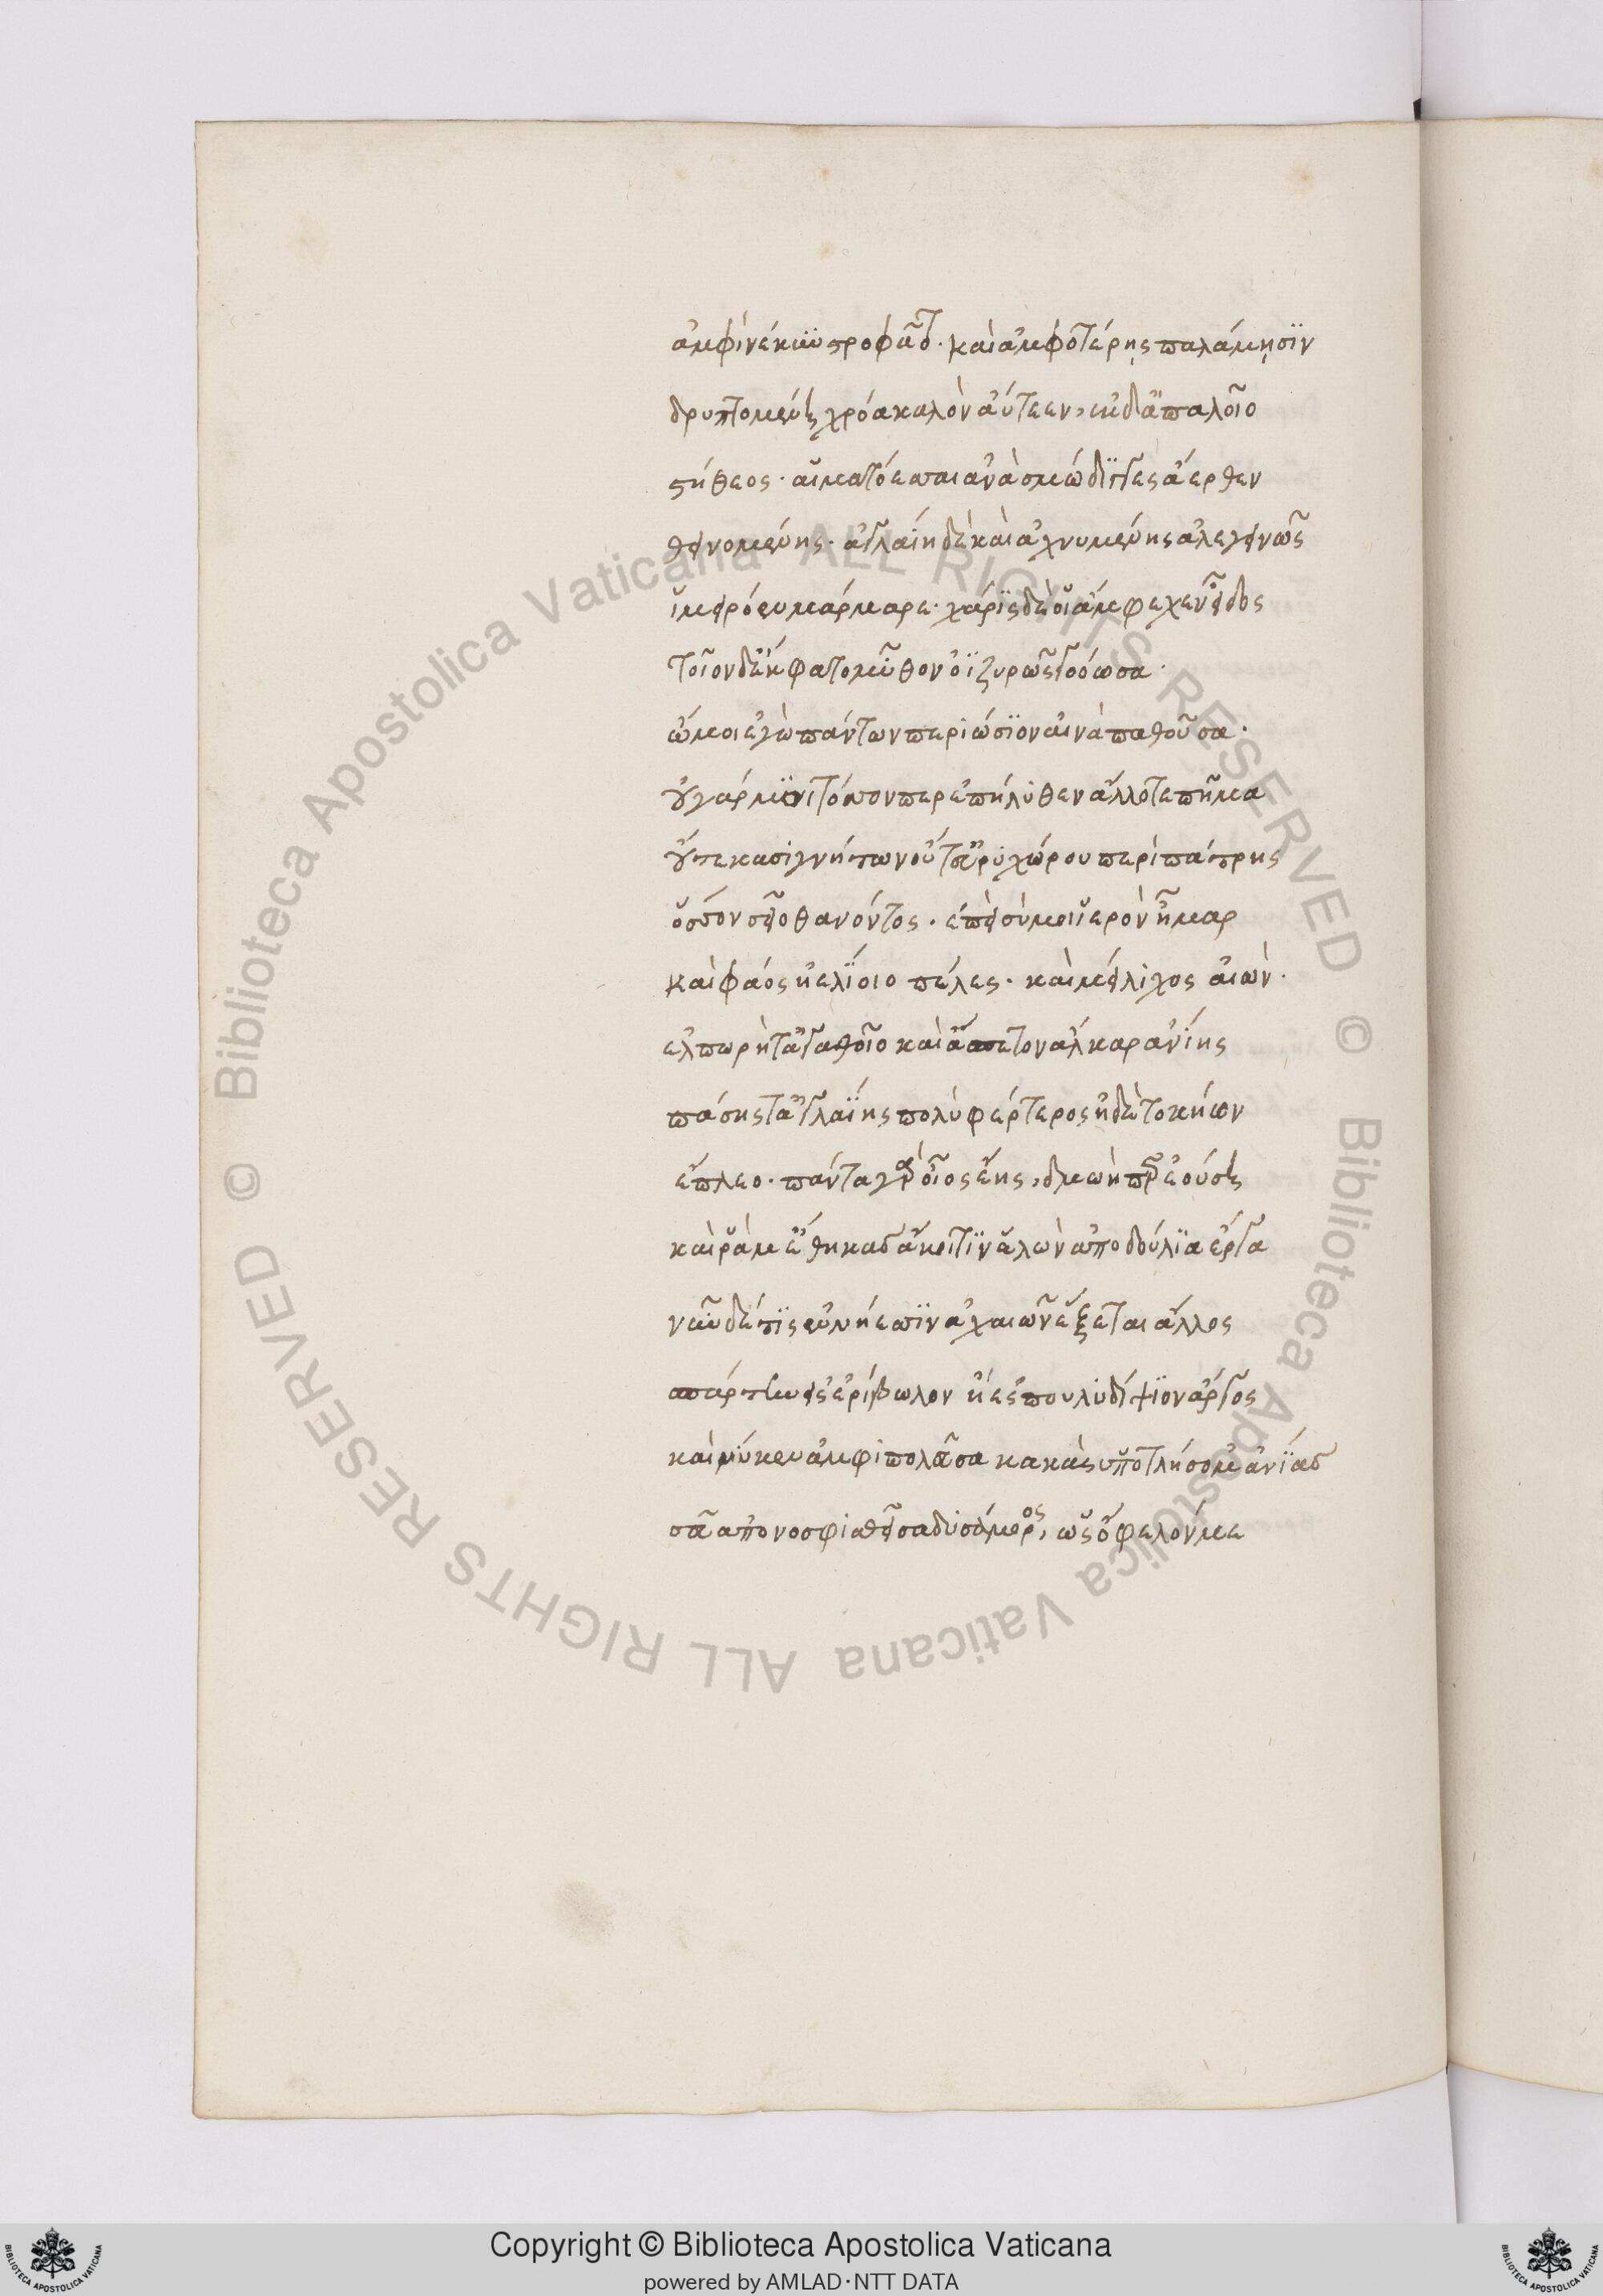 ἀμφὶ νέκυϊ στροφᾶτο· καὶ ἀμφοτέρῃς παλάμῃσϊν
δρυπτομένη χρόα καλὸν ἀΰτεεν, ἐκ δ' ἁπαλοῖο
στήθεος· αἱματόεσσαι ἀνὰ σμώδιγγες ἄερθεν
θεινομένης· ἀγλαΐη δὲ καὶ ἀχνυμένης ἀλεγεινῶς
ἱμερόεν μάρμαρε· χάρϊς δέ οἱ ἄμφεχεν εἶδος
τοῖον δ' ἔκφατο μῦθον ὀϊζυρῶς γοόωσα·
ὤμοι ἐγὼ πάντων περιώσϊον αἰνὰ παθοῦσα·
οὐ γάρ μοι τόσσον περ ἐπήλυθεν ἄλλοτε πῆμα
οὔτε κασιγνήτων οὔτ' εὐρυχώρου περὶ πάτρης
ὅσσον σεῖο θανόντος· ἐπεὶ σύ μοι ἱερὸν ἦμαρ
καὶ φάος ἠελίοιο πέλες· καὶ μείλιχος αἰών·
ἐλπωρή τ' ἀγαθοῖο καὶ ἄσπετον ἄλκαρ ἀνίης
πάσης τ' ἀγλαΐης πολὺ φέρτερος ἠδὲ τοκήων
ἔπλεο· πάντα γὰρ οἶος ἔης, δμωῇ περ ἐούσῃ
καί ῥά μ' ἔθηκας ἄκοιτϊν ἑλὼν ἄπο δούλϊα ἔργα
νῦν δέ τϊς ἐν νήεσσϊν ἀχαιῶν ἄξεται ἄλλος
σπάρτην εἰς ἐρίβωλον ἢ ἐς πουλυδίψϊον ἄργος
καί νύ κεν ἀμφιπολεῦσα κακὰς ὑποτλήσομ' ἀνίας
σεῦ ἀπονοσφισθεῖσα δυσάμμορος, ὡς ὄφελόν με
Copyright © Biblioteca Apostolica Vaticana
powered by AMLAD·NTT DATA